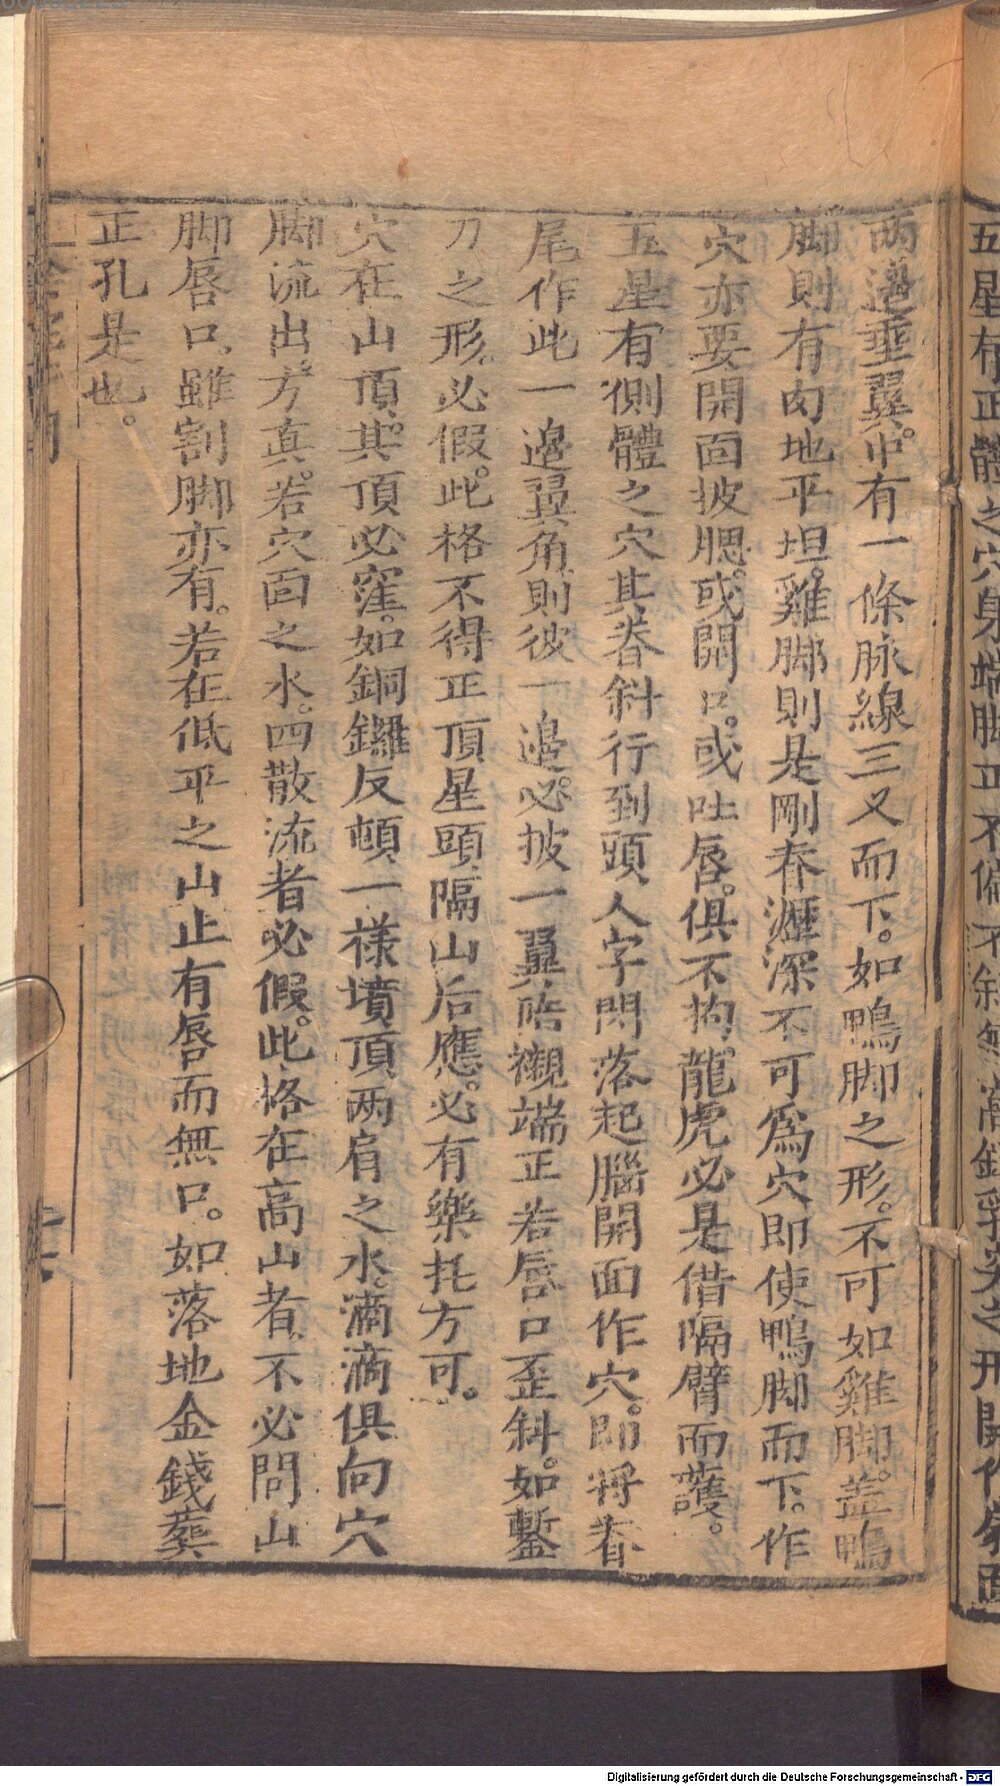 五星有正體之穴身端脚正不偏不斜
两邉垂翼。中有一條脉線三叉而下。如鴨脚之形。不可如雞脚。盖鴨
脚則有肉地平坦。雞脚則是剛脊瀝深不可爲穴即使鴨脚而下。作
穴亦要開面披腮。或開口。或吐唇。俱不拘。龍虎必是借隔臂而護。
五星有側體之穴其脊斜行到頭人字閃落起腦開面作穴。即將脊
尾作此一邉翼角則彼一邉。必披一翼。陪襯端正若唇口歪斜。如鏨
刀之形。必假。此格不得正頂星頭、隔山后應。必有樂托方可。
穴在山頂。其頂必窪。如銅鑼反頓一樣墳頂两肩之水。滴滴俱向穴
脚流出。方真。若穴面之水。四散流者必假。此格在高山者、不必問山
脚唇口。雖割脚亦有。若在低平之山止有唇而無口。如落地金錢葬
正孔是也。
Digitalisierung gefördert durch die Deutsche Forschungsgemeinschaft - DFG